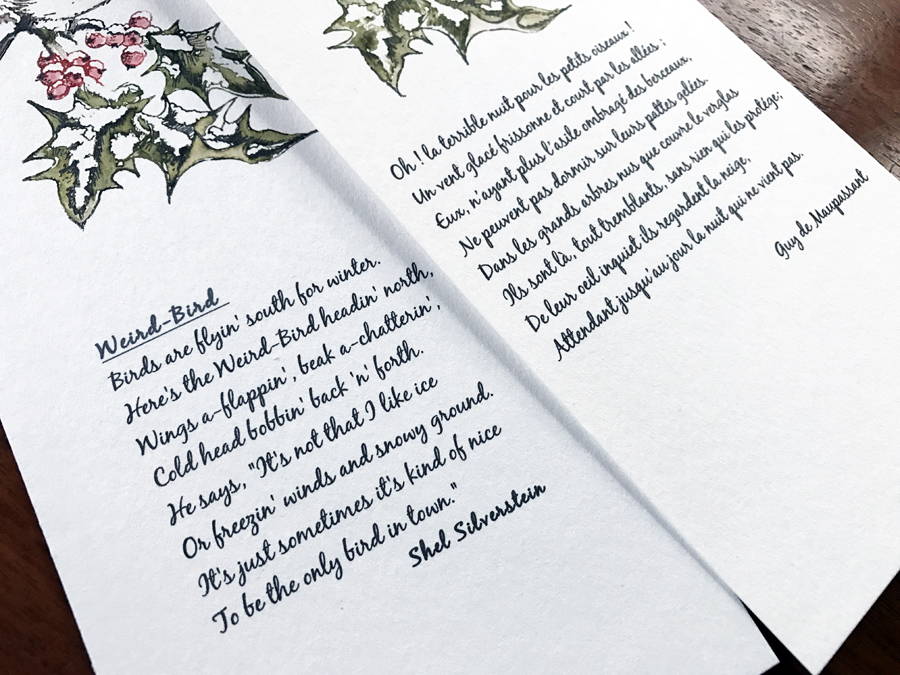 Weird-Bird
Birds are flyin' south for winter.
Here's the Weird-Bird headin' north,
Wings a-flappin', beak a-chatterin',
Cold head bobbin' back 'n' forth.
He says, "It's not that I like ice
Or freezin' winds and snowy ground.
It's just sometimes it's kind of nice
To be the only bird in town."
Shel Silverstein
Oh ! la terrible nuit pour les petits oiseaux !
Un vent glacé frissonne et court par les allées ;
Eux, n'ayant plus l'asile ombragé des berceaux,
Ne peuvent pas dormir sur leurs pattes gelées.
Dans les grands arbres nus que couvre le verglas
Ils sont là, tout tremblants, sans rien qui les protège;
De leur oeil inquiet ils regardent la neige,
Attendant jusqu'au jour la nuit qui ne vient pas.
Guy de Maupassant